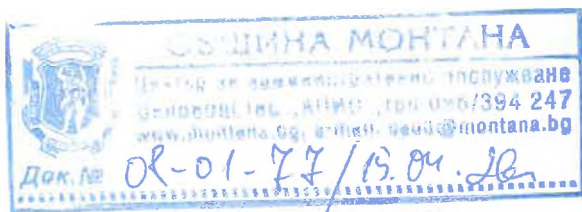 ОБЩИНА МОНТАНА
Център за административно обслужване
/394 247
www.montana.bg, e-mail: @montana.bg
Док. № 02-01-77/15.04.